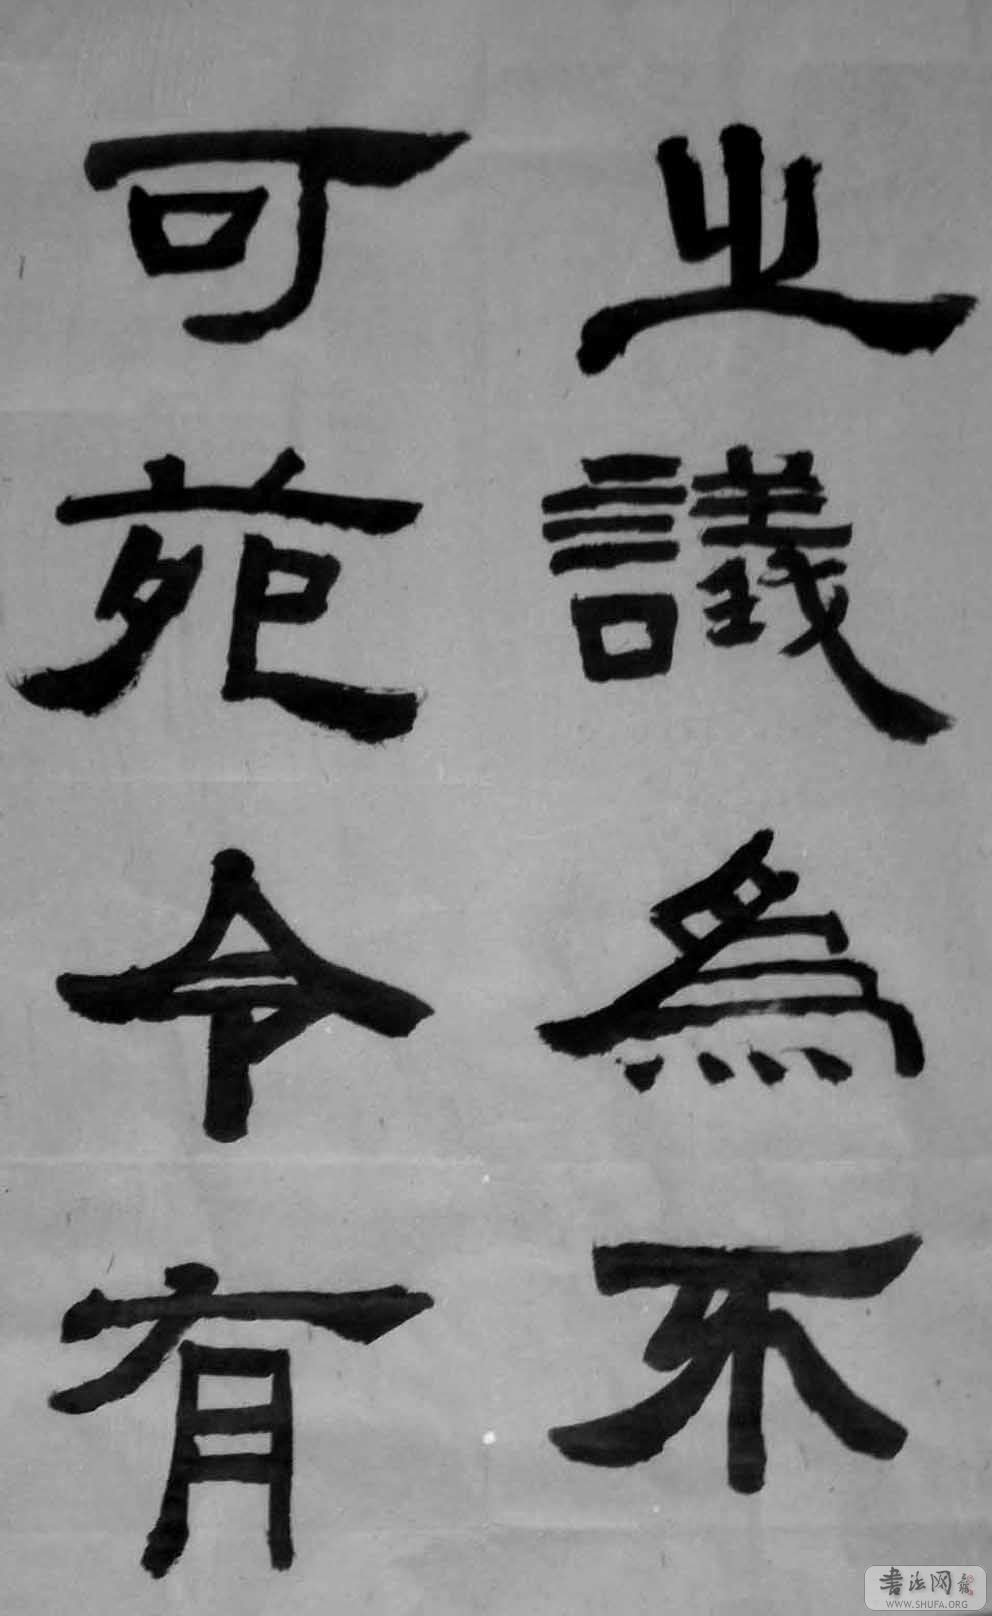 之議為不
可苑令有
書法网
WWW.SHUFA.ORG